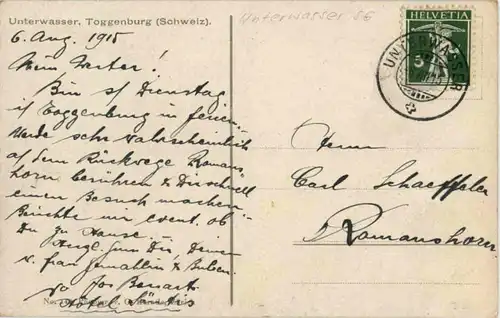 Unterwasser, Toggenburg (Schweiz).
Unterwasser SG
6. Aug. 1915
Mein Werter!
Bin s/ Dienstag
if Toggenburg in Ferien.
Werde sehr wahrscheinlich
a/ dem Rückwege Romans
horn berühren & Dir schnell
einen Besuch machen.
Berichte mir event. ob
Du zu Hause.
Herzl. Dir, Deiner
v. frau Gemahlin & Buben
Jos
Hotel Säntis
HELVETIA
5
UNTERWASSER
Herrn
Carl Schaeffeler
Romanshorn